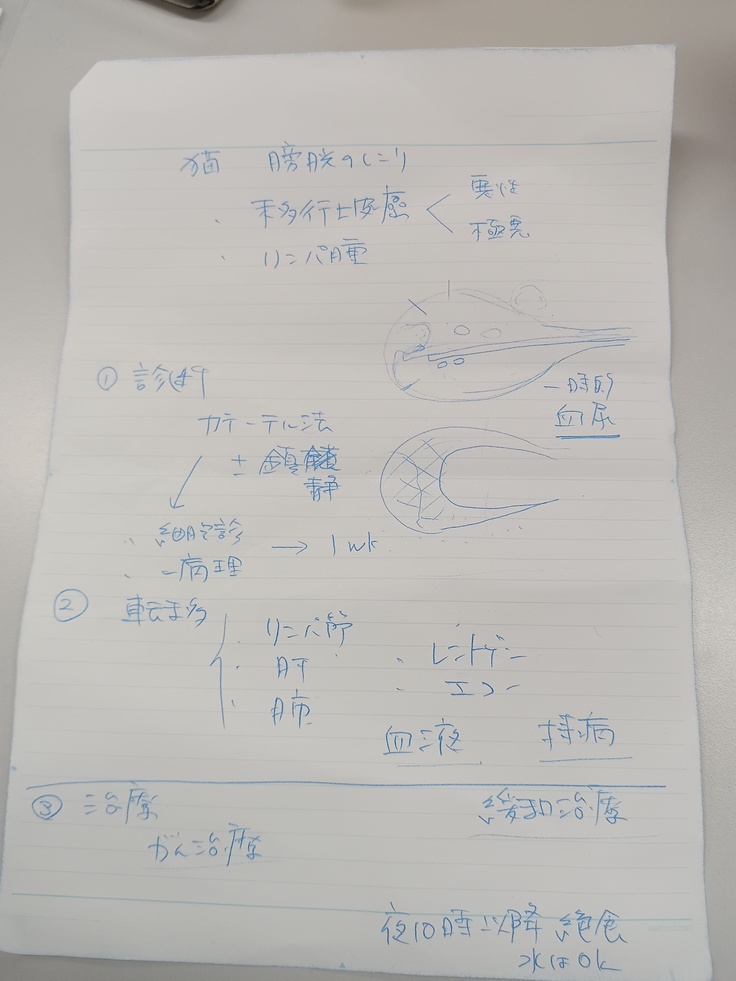 猫 膀胱のしこり
・移行上皮癌 < 悪性
極悪
・リンパ腫
① 診断
カテーテル法
± 鎮静
一時的
血尿
・細胞診 → 1wk
・病理
② 転移
・リンパ節
・肝
・肺
・レントゲン
・エコー
血液 持病
③ 治療 緩和治療
がん治療
夜10時以降 絶食
水はOk